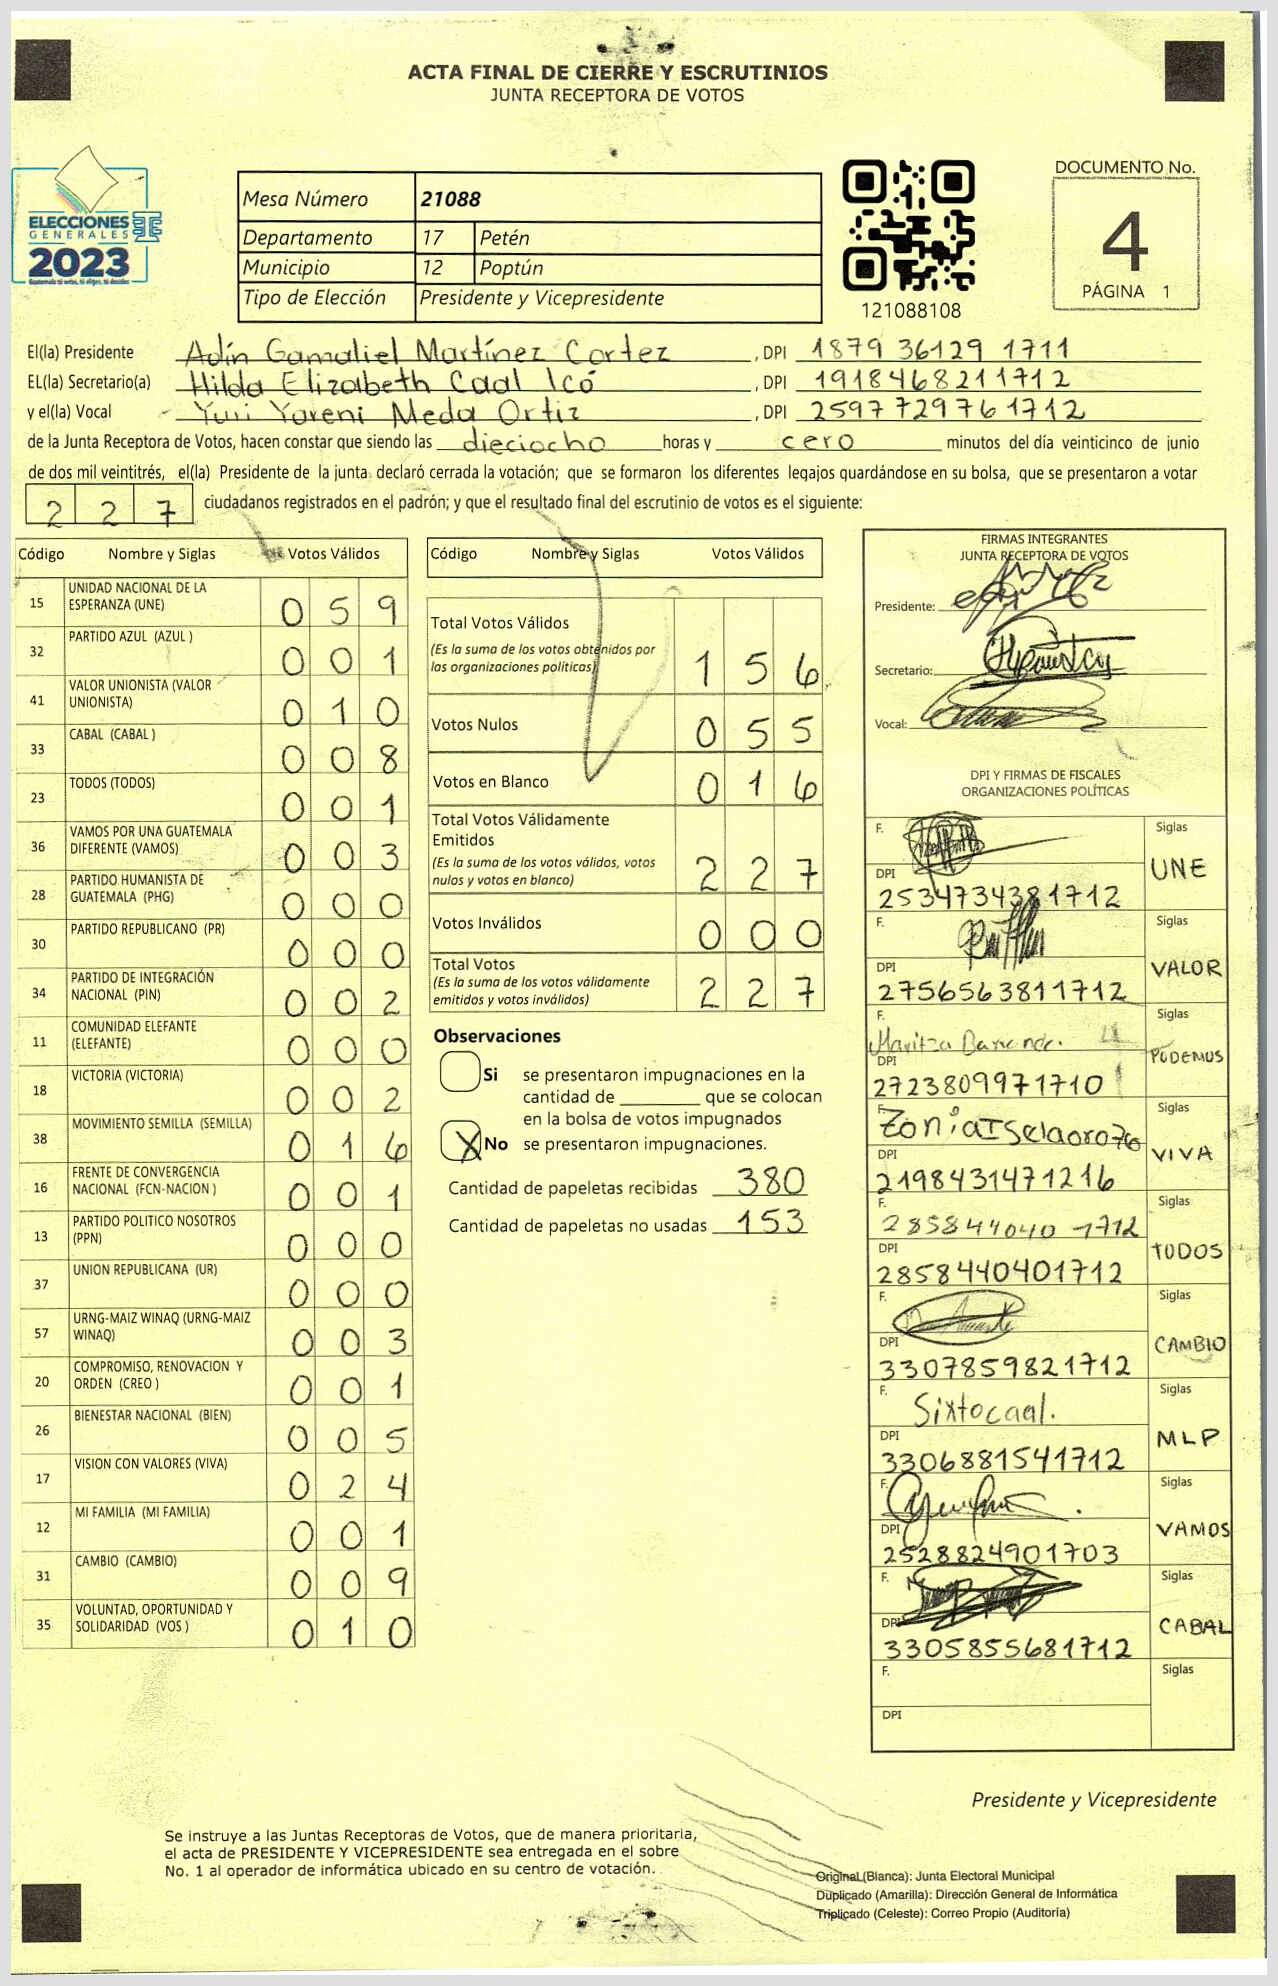 ACTA FINAL DE CIERRE Y ESCRUTINIOS
JUNTA RECEPTORA DE VOTOS
ELECCIONES
GENERALES
2023
Mesa Número 21088
Departamento 17 Petén
Municipio 12 Poptún
Tipo de Elección Presidente y Vicepresidente
121088108
DOCUMENTO No.
4
PÁGINA 1
El(la) Presidente Adín Gamaliel Martínez Cortez , DPI 1879 36129 1711
EL(la) Secretario(a) Hilda Elizabeth Caal Icó , DPI 1918468211712
y el(la) Vocal Yuri Yareni Meda Ortiz , DPI 2597729761712
de la Junta Receptora de Votos, hacen constar que siendo las dieciocho horas y cero minutos del día veinticinco de junio
de dos mil veintitrés, el(la) Presidente de la junta declaró cerrada la votación; que se formaron los diferentes legajos guardándose en su bolsa, que se presentaron a votar
2 2 7 ciudadanos registrados en el padrón; y que el resultado final del escrutinio de votos es el siguiente:
Código Nombre y Siglas Votos Válidos
15 UNIDAD NACIONAL DE LA ESPERANZA (UNE) 0 5 9
32 PARTIDO AZUL (AZUL ) 0 0 1
41 VALOR UNIONISTA (VALOR UNIONISTA) 0 1 0
33 CABAL (CABAL ) 0 0 8
23 TODOS (TODOS) 0 0 1
36 VAMOS POR UNA GUATEMALA DIFERENTE (VAMOS) 0 0 3
28 PARTIDO HUMANISTA DE GUATEMALA (PHG) 0 0 0
30 PARTIDO REPUBLICANO (PR) 0 0 0
34 PARTIDO DE INTEGRACIÓN NACIONAL (PIN) 0 0 2
11 COMUNIDAD ELEFANTE (ELEFANTE) 0 0 0
18 VICTORIA (VICTORIA) 0 0 2
38 MOVIMIENTO SEMILLA (SEMILLA) 0 1 6
16 FRENTE DE CONVERGENCIA NACIONAL (FCN-NACION ) 0 0 1
13 PARTIDO POLITICO NOSOTROS (PPN) 0 0 0
37 UNION REPUBLICANA (UR) 0 0 0
57 URNG-MAIZ WINAQ (URNG-MAIZ WINAQ) 0 0 3
20 COMPROMISO, RENOVACION Y ORDEN (CREO ) 0 0 1
26 BIENESTAR NACIONAL (BIEN) 0 0 5
17 VISION CON VALORES (VIVA) 0 2 4
12 MI FAMILIA (MI FAMILIA) 0 0 1
31 CAMBIO (CAMBIO) 0 0 9
35 VOLUNTAD, OPORTUNIDAD Y SOLIDARIDAD (VOS ) 0 1 0
Código Nombre y Siglas Votos Válidos
Total Votos Válidos
(Es la suma de los votos obtenidos por las organizaciones políticas) 1 5 6
Votos Nulos 0 5 5
Votos en Blanco 0 1 6
Total Votos Válidamente Emitidos
(Es la suma de los votos válidos, votos nulos y votos en blanco) 2 2 7
Votos Inválidos 0 0 0
Total Votos
(Es la suma de los votos válidamente emitidos y votos inválidos) 2 2 7
Observaciones
Si se presentaron impugnaciones en la
cantidad de ________ que se colocan
en la bolsa de votos impugnados
X No se presentaron impugnaciones.
Cantidad de papeletas recibidas 380
Cantidad de papeletas no usadas 153
FIRMAS INTEGRANTES
JUNTA RECEPTORA DE VOTOS
Presidente:
Secretario:
Vocal:
DPI Y FIRMAS DE FISCALES
ORGANIZACIONES POLÍTICAS
F. Siglas
DPI 2534734381712 UNE
F. Siglas
DPI 2756563811712 VALOR
F. Maritza Siglas
DPI 2723809971710 PODEMOS
F. Siglas
DPI 2198431471216 VIVA
F. 285844040 1712 Siglas
DPI 2858440401712 TODOS
F. Siglas
DPI 3307859821712 CAMBIO
F. Sixtocaal. Siglas
DPI 3306881541712 MLP
F. Siglas
DPI 2528824901703 VAMOS
F. Siglas
DPI 3305855681712 CABAL
F. Siglas
DPI
Presidente y Vicepresidente
Se instruye a las Juntas Receptoras de Votos, que de manera prioritaria,
el acta de PRESIDENTE Y VICEPRESIDENTE sea entregada en el sobre
No. 1 al operador de informática ubicado en su centro de votación.
Original (Blanca): Junta Electoral Municipal
Duplicado (Amarilla): Dirección General de Informática
Triplicado (Celeste): Correo Propio (Auditoría)